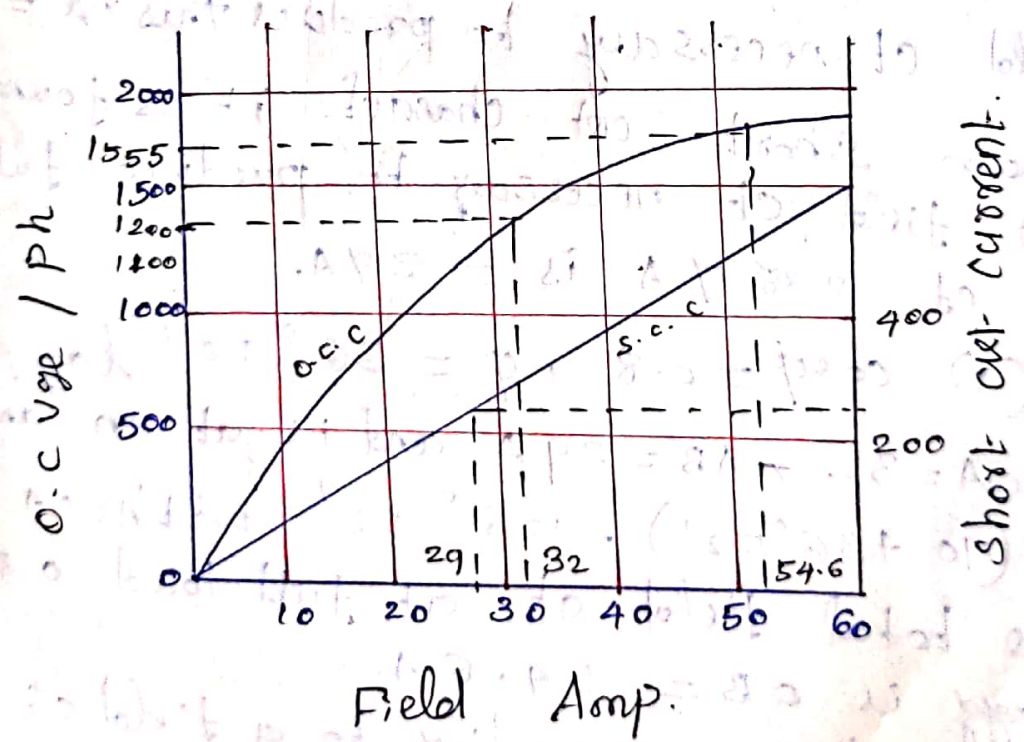 2000
1555
1500
1200
1100
1000
500
0
O.C vge / ph
O.C.C
S.C.C
400
200
Short ckt current.
29
32
54.6
10 20 30 40 50 60
Field Amp.